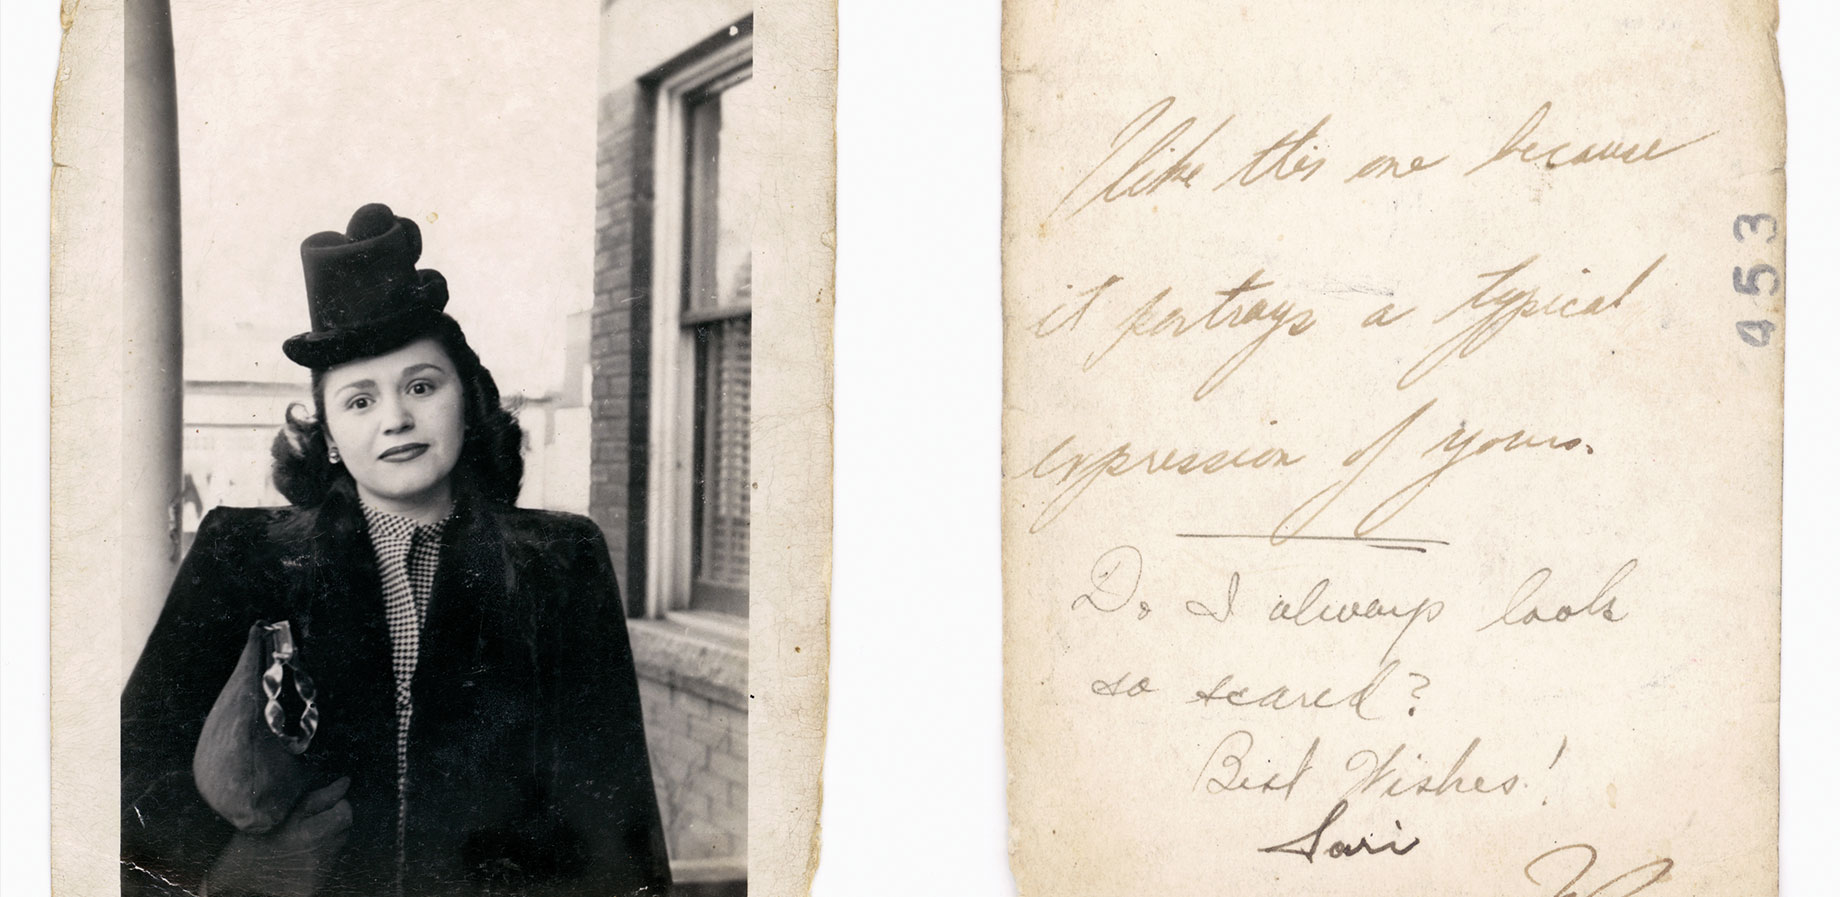 I like this one because
it portrays a typical
expression of yours.
Do I always look
so scared?
Best Wishes!
Sari
453